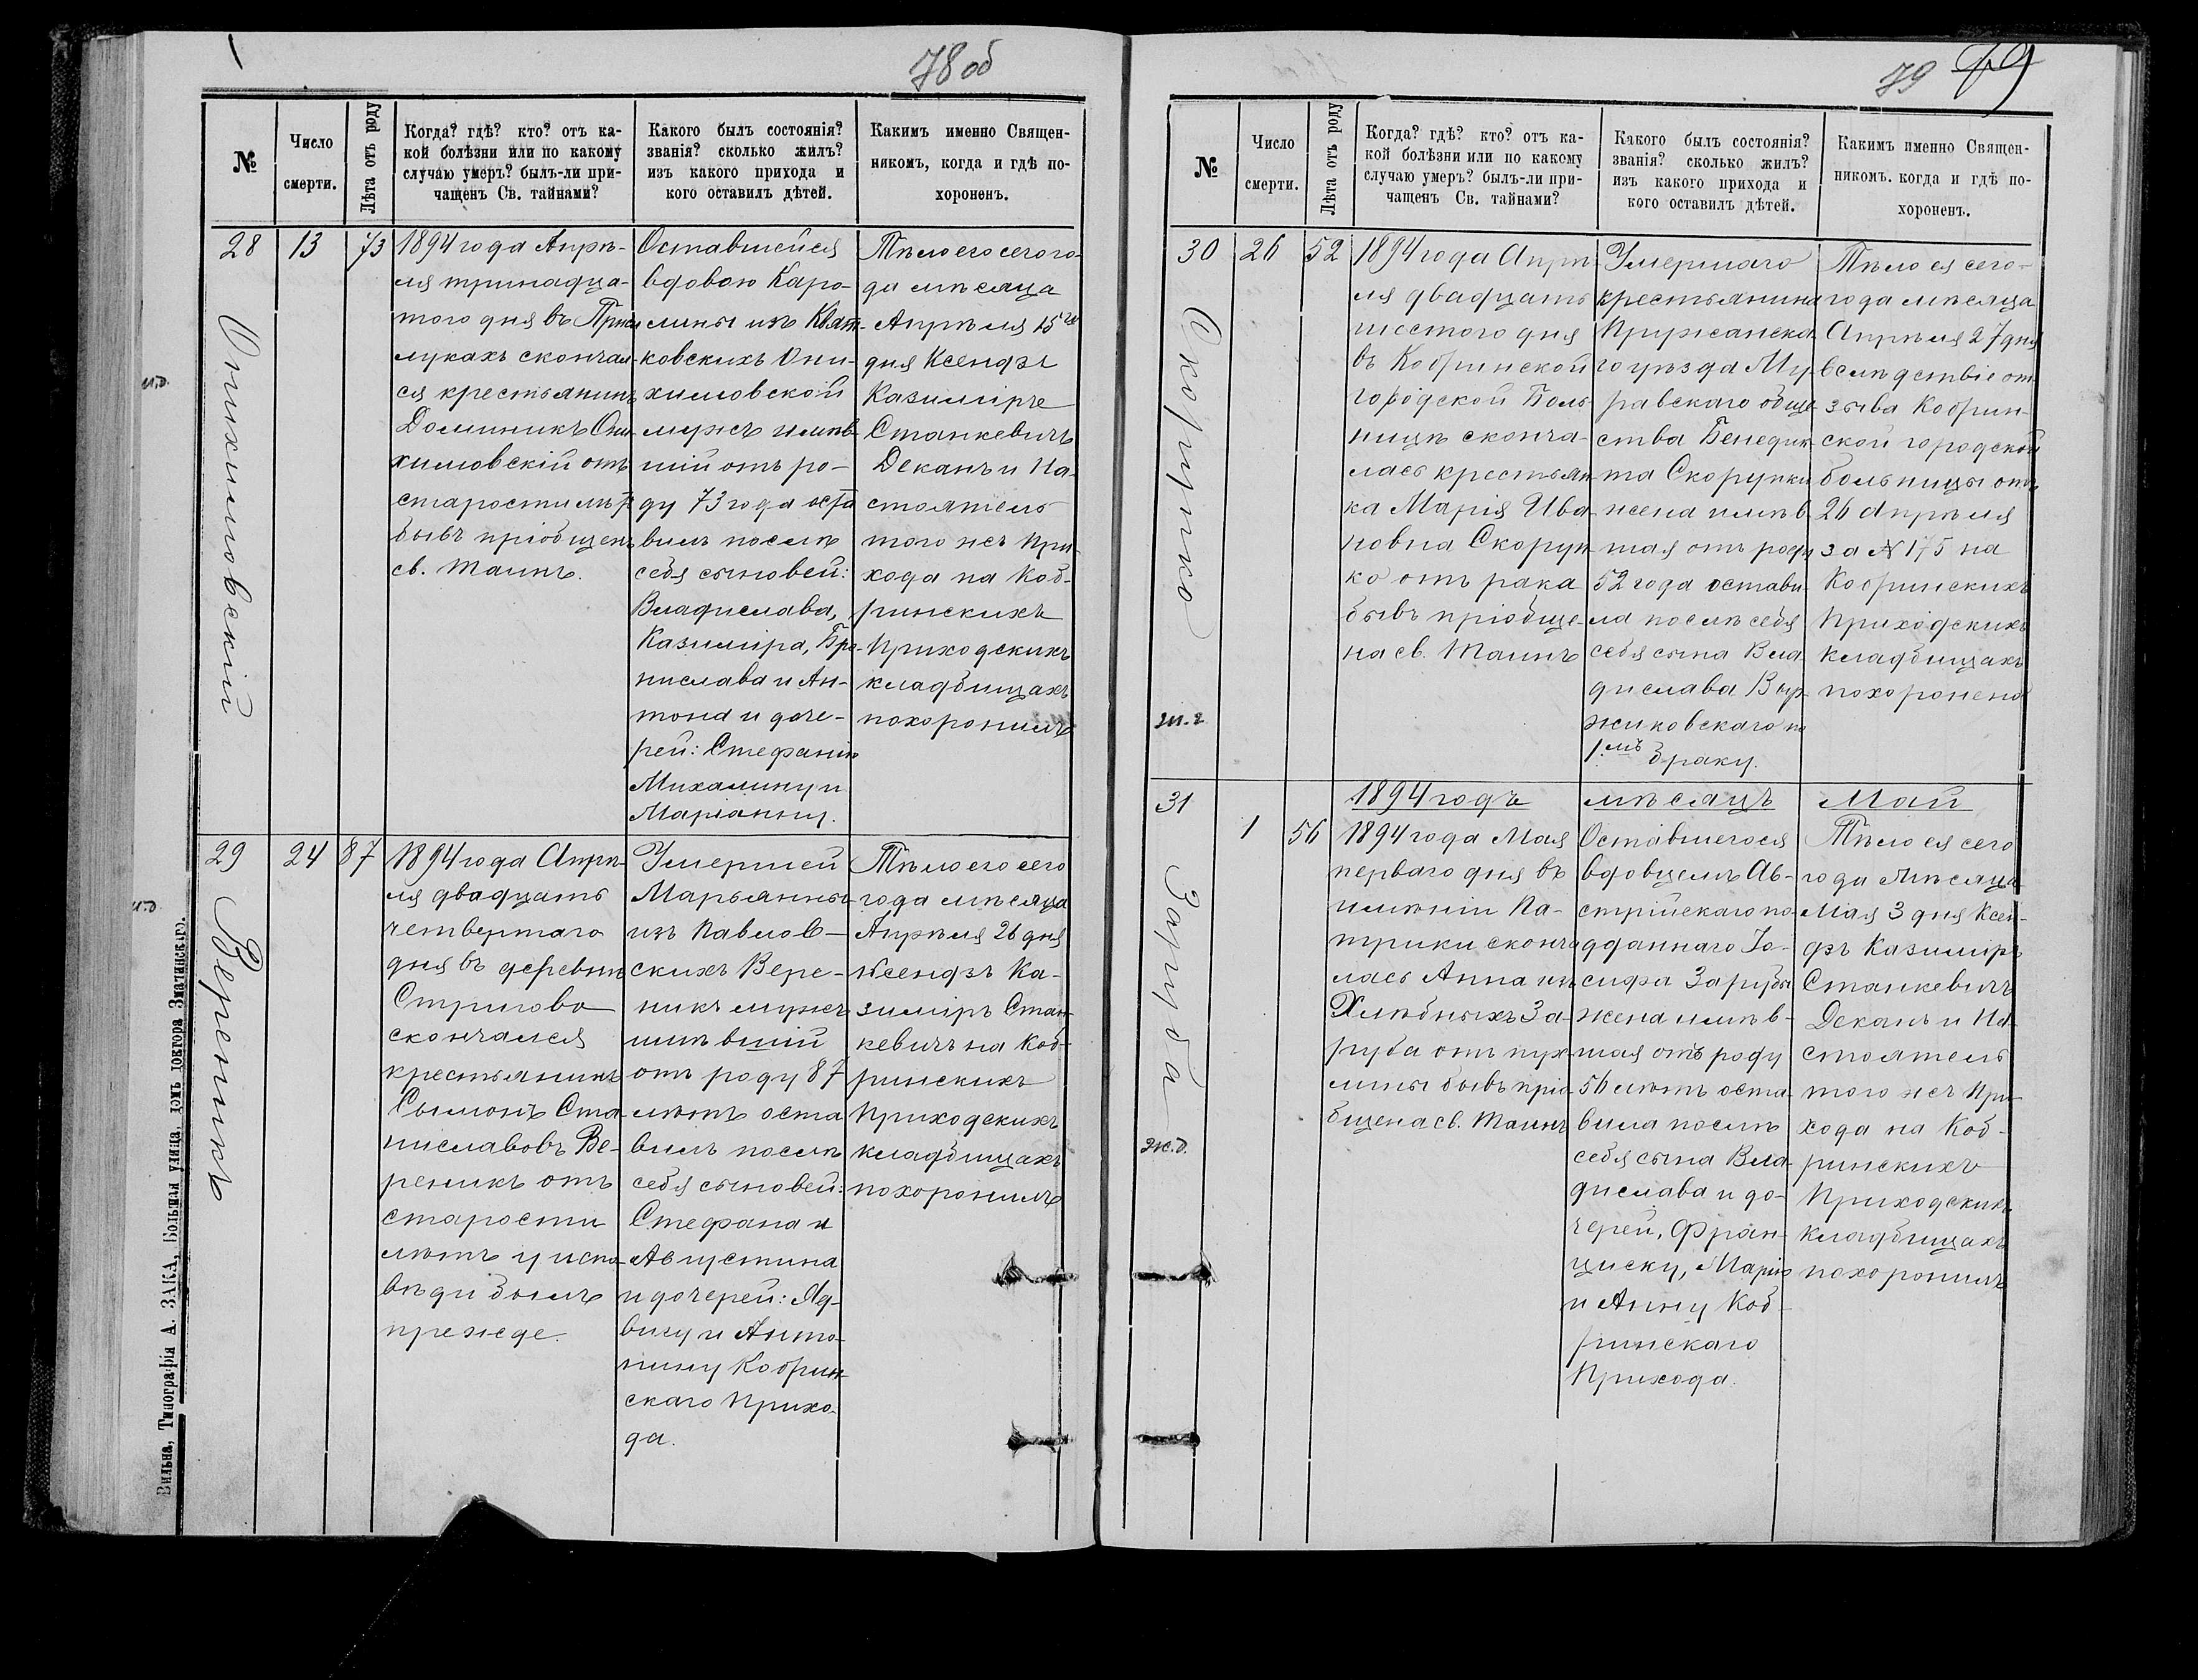 78 об
№
Число
смерти.
Лѣта отъ роду
Когда? гдѣ? кто? отъ ка-
кой болѣзни или по какому
случаю умеръ? былъ-ли при-
чащенъ Св. тайнами?
Какого былъ состоянія?
званія? сколько жилъ?
изъ какого прихода и
кого оставилъ дѣтей.
Какимъ именно Священ-
никомъ, когда и гдѣ по-
хороненъ.
28
Опихимовскій
и.д.
13
73
1894 года Апрѣ-
ля тринадца-
того дня въ При
лукахъ скончал
ся крестьянинъ
Доминикъ Опи
химовскій отъ
старости лѣтъ
бывъ пріобщенъ
св. Таинъ.
Оставшейся
вдовою Каро-
лины изъ Квят-
ковскихъ Опи-
химовской
мужъ имѣв
шій отъ ро-
ду 73 года оста
вилъ послѣ
себя сыновей:
Владислава,
Казиміра, Бро-
нислава и Ан-
тона и доче-
рей: Стефанію
Михалину и
Маріанну.
Тѣло его сего го-
да мѣсяца
Апрѣля 15го
дня Ксендзъ
Казиміръ
Станкевичъ
Деканъ и На-
стоятель
того же При-
хода на Коб-
ринскихъ
Приходскихъ
кладбищахъ
похоронилъ
29
Вереникъ
и.д.
24
87
1894 года Апрѣ-
ля двадцать
четвертаго
дня въ деревнѣ
Стригово
скончался
крестьянинъ
Сымонъ Ста
ниславовъ Ве-
реникъ отъ
старости
лѣтъ у испо
вѣди былъ
прежде.
Умершей
Марьянны
изъ Павлов-
скихъ Вере-
никъ мужъ
имѣвшій
отъ роду 87
лѣтъ оста
вилъ послѣ
себя сыновей:
Стефана и
Августина
и дочерей: Яд-
вигу и Анто-
нину Кобрин
скаго Прихо-
да.
Тѣло его сего
года мѣсяца
Апрѣля 26 дня
Ксендзъ Ка-
зиміръ Стан
кевичъ на Коб-
ринскихъ
Приходскихъ
кладбищахъ
похоронилъ
Вильна, Типографія А. ЗАКА, Большая улица, домъ доктора Змачинскаго.
79 79
№
Число
смерти.
Лѣта отъ роду
Когда? гдѣ? кто? отъ ка-
кой болѣзни или по какому
случаю умеръ? былъ-ли при-
чащенъ Св. тайнами?
Какого былъ состоянія?
званія? сколько жилъ?
изъ какого прихода и
кого оставилъ дѣтей.
Какимъ именно Священ-
никомъ. когда и гдѣ по-
хороненъ.
30
Скорупко
26
52
1894 года Апрѣ
ля двадцать
шестого дня
въ Кобринской
городской Боль
ницѣ сконча-
лась крестьян
ка Марія Ива
новна Скоруп
ко отъ рака
бывъ пріобще
на св. Таинъ
Умершаго
крестьянина
Пружанска
го уѣзда Му-
равскаго обще
ства Бенедик
та Скорупки
жена имѣв
шая отъ роду
52 года остави
ла послѣ себя
себя сына Вла
дислава Выр-
жиковскаго по
1.мъ браку.
Тѣло ея сего-
года мѣсяца
Апрѣля 27 дня
вслѣдствіе от
зыва Кобрин-
ской городской
больницы отъ
26 Апрѣля
за № 175 на
Кобринскихъ
Приходскихъ
кладбищахъ
похоронено
31
Заруба
ж.д.
1894 годъ мѣсяцъ Май
1
56
1894 года Мая
перваго дня въ
имѣніи Па-
трики сконча
лась Анна изъ
Хлѣбныхъ За-
руба отъ пух-
лины бывъ пріо
бщена св. Таинъ
Оставшегося
вдовцемъ Ав-
стрійскаго по
дданнаго Іо-
сифа Зарубы
жена имѣв-
шая отъ роду
56 лѣтъ оста-
вила послѣ
себя сына Вла
дислава и до-
черей, Фран-
циску, Марію
и Анну Коб-
ринскаго
Прихода.
Тѣло ея сего
года мѣсяца
Мая 3 дня Ксен-
дзъ Казиміръ
Станкевичъ
Деканъ и На-
стоятель
того же При-
хода на Коб-
ринскихъ
Приходскихъ
кладбищахъ
похоронилъ